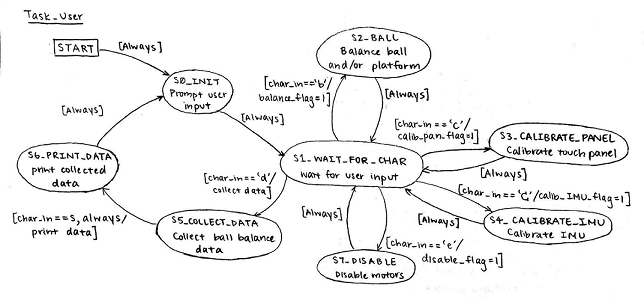 Task_User
START
[Always]
S0_INIT
Prompt user
input
[Always]
S2_BALL
Balance ball
and/or platform
[char_in=='b'/
balance_flag=1]
[Always]
[Always]
S1_WAIT_FOR_CHAR
wait for user input
[char_in=='c'/
calib_pan_flag=1]
S3_CALIBRATE_PANEL
Calibrate touch panel
[Always]
S6_PRINT_DATA
print collected
data
[char_in=='d'/
collect data]
[char_in==s, always/
print data]
S5_COLLECT_DATA
Collect ball balance
data
[Always]
[char_in=='e'/
disable_flag=1]
S7_DISABLE
Disable motors
[Always]
/calib_IMU_flag=1]
S4_CALIBRATE_IMU
Calibrate IMU